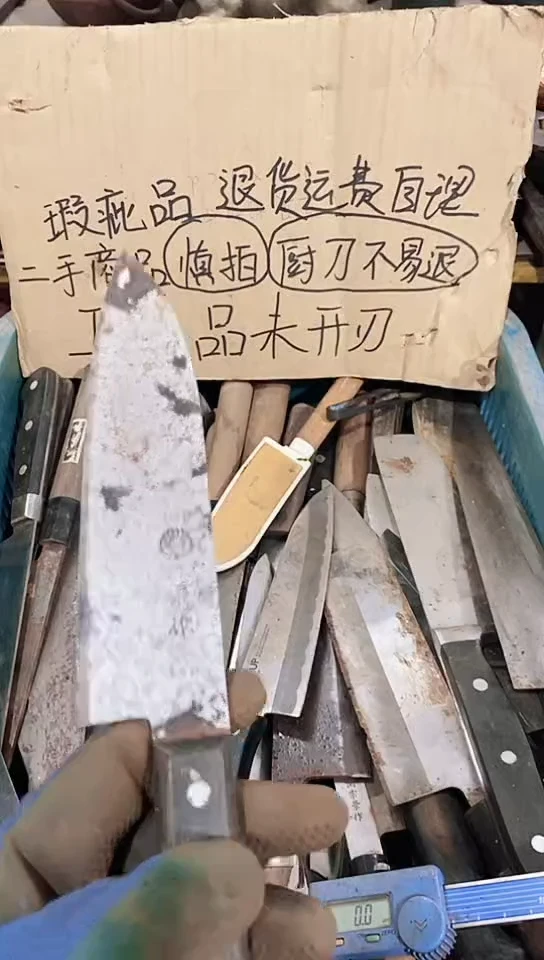 瑕疵品 退货运费自理
二手商品 慎拍 厨刀不易退
品未开刃
作
0.0
ZERO